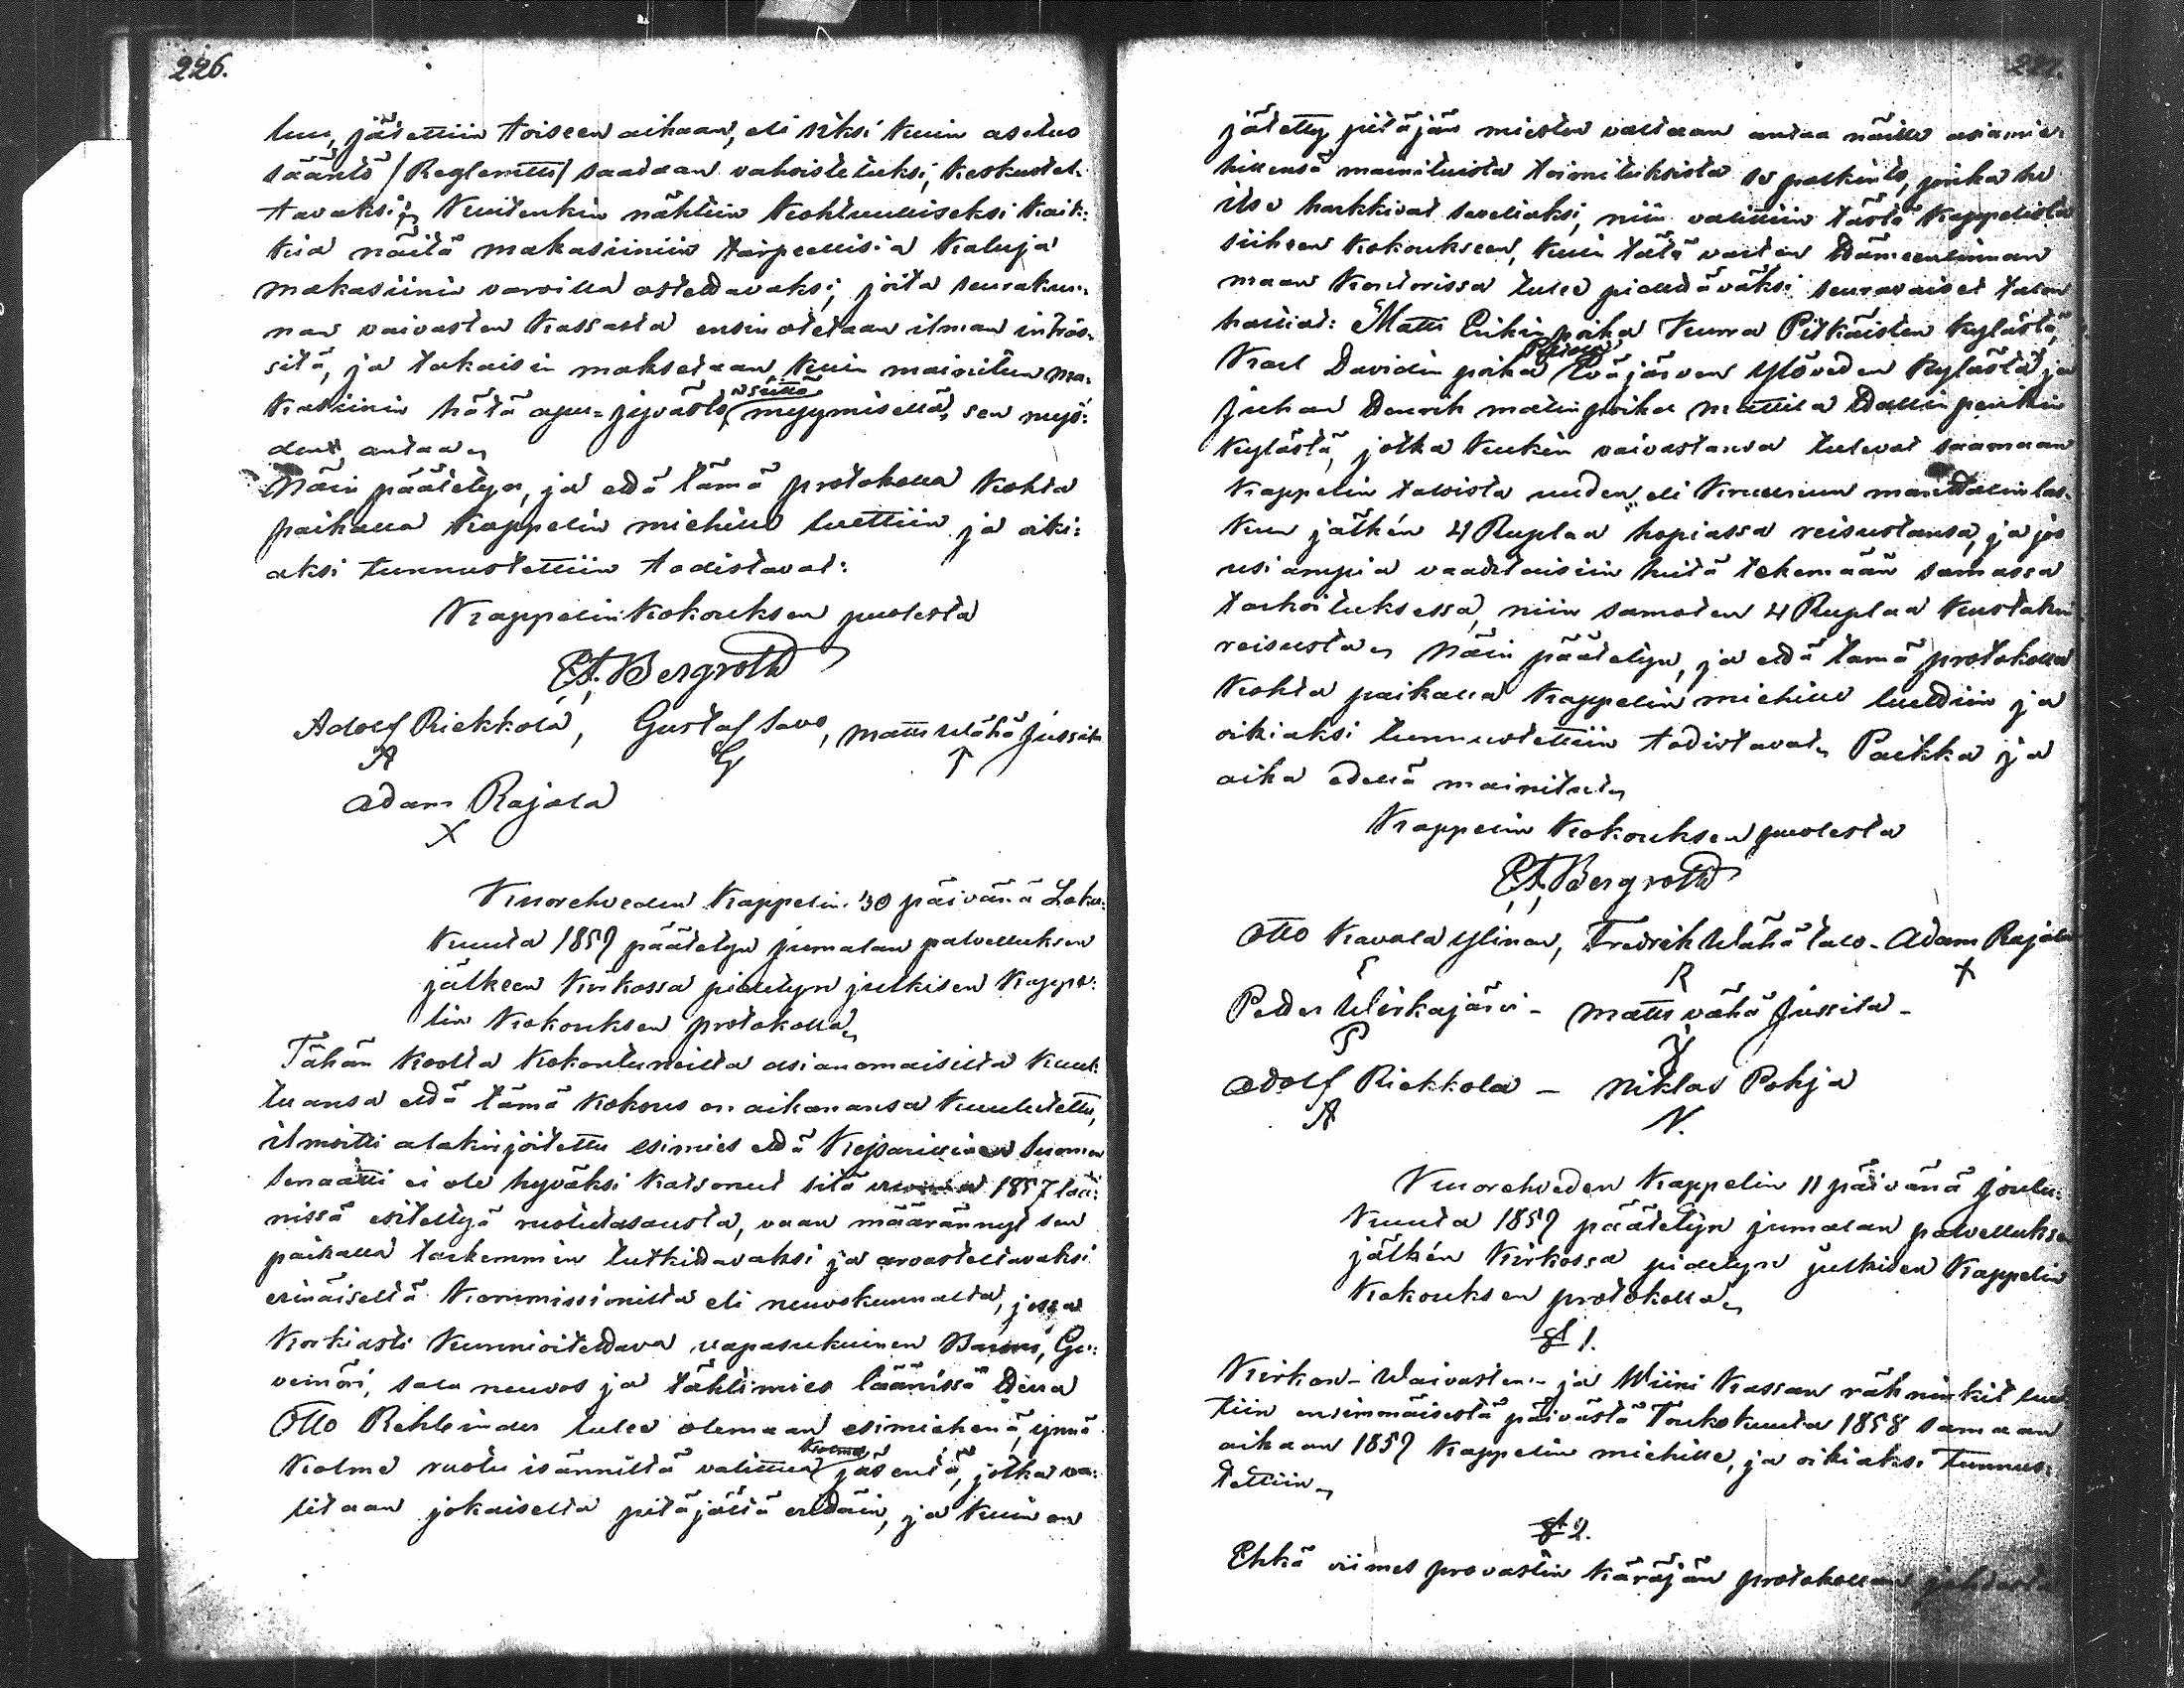 226.
luu, jätettiin toiseen aikaan, eli siksi kuin asetus
sääntö /Reglementti/ saadaan vahvistetuksi, keskustel-
tavaksi; kuitenkin nähtiin kohtuulliseksi kaik-
kia näitä makasiiniin tarpeellisia kaluja
makasiinin varoilla ostettavaksi, joita seurakun-
nan vaivasten kassasta ensin otetaan ilman intres-
sitä, ja takaisin maksetaan kuin mainitun ma-
kasiinin hätä apu-jyvästö myymisellä, sen myö-
den antaa
Näin päätetyn, ja että tämä protokolla kohta
paikalla kappelin miehille luettiin ja oiki-
aksi tunnustettiin todistavat:
Kappelin kokouksen puolesta
E. A. Bergroth
Adolf Riekkola, Gustaf Savo, Matts Wähä Jussila
A G T
Adam Rajala
X
Kuorehveden Kappelin 30 päivänä Loka-
kuuta 1859 päätetyn jumalan palvelluksen
jälkeen kirkossa pidetyn julkisen kappe-
lin kokouksen protokolla
Tähän koolla kokontuneilta asianomaisilta kuul-
tuansa että tämä kokous on aikanansa kuulutettu,
ilmoitti alakirjoitettu esimies että Kejsarillinen Suomen
Senaatti ei ole hyväksi katsonut sitä 1857 lää-
nissä esiteltyä ruotutasausta, vaan määrännyt sen
paikalla tarkemmin tutkittavaksi ja arvosteltavaksi
erinäiseltä Kommissionilta eli neuvoskunnalta, jossa
korkiasti kunnioitettava vapasukuinen Baroni, Gu-
vernöri, sala neuvos ja tähtimies läänissä Herra
Otto Rehbinder tulee olemaan esimiehenä, ynnä
kolme
kolme ruotu isänniltä valittua jäsentä, jotka va-
litaan jokaiselta pitäjältä erittäin, ja kuin on
227.
jätetty pitäjän miesten valtaan antaa näille asiamie-
hillensä mainituista toimituksista se palkinto, jonka he
itse harkkivat soveliaksi, niin valittiin tästä kappelista
siiheen kokoukseen, kuin tätä varten Hämeenlinnan
maan kontorissa tulee pidettäväksi seuravaiset talon
haltiat: Matti Erikin poika Kurra Pitkäisten kylästä,
Karl Davidin poika Eväjärven Ylöveden kylästä ja
Juhan Henrik Matin poika Mattila Hallin penkin
kylästä, jotka kukin vaivastansa tulevat saamaan
kappelin talvista uuden eli kruunun manttalin las-
kun jälkén 4 Ruplaa hopiassa reisustansa, ja jos
usiampia vaadittaisiin heitä tekemään samassa
tarkoituksessa, niin samoten 4 Ruplaa kustakin
reisusta. Näin päätetyn, ja että tämä protokolla
kohta paikalla kappelin miehille luettiin ja
oikiaksi tunnustettiin todistavat. Paikka ja
aika edellä mainitut.
Kappelin kokouksen puolesta
E. A. Bergroth
Otto Kavala Ylinen, Fredrik Wähätalo - Adam Rajala
R X
Petter Wirkajärvi - Matts wähä Jussila -
P
Adolf Riekkola - Niklas Pohja
A N.
Kuorehveden Kappelin 11 päivänä joulu-
kuuta 1859 päätetyn jumalan palvelluksen
jälkén kirkossa pidetyn julkisen kappelin
kokouksen protokolla
§ 1.
Kirkon- Waivasten- ja Wiini kassan räkninkit luet-
tiin ensimmäisestä päivästä Toukokuuta 1858 samaan
aikaan 1859 kappelin miehille, ja oikiaksi tunnus-
tettiin
§ 2.
Ehkä viimes provastin käräjän protokollan johdosta